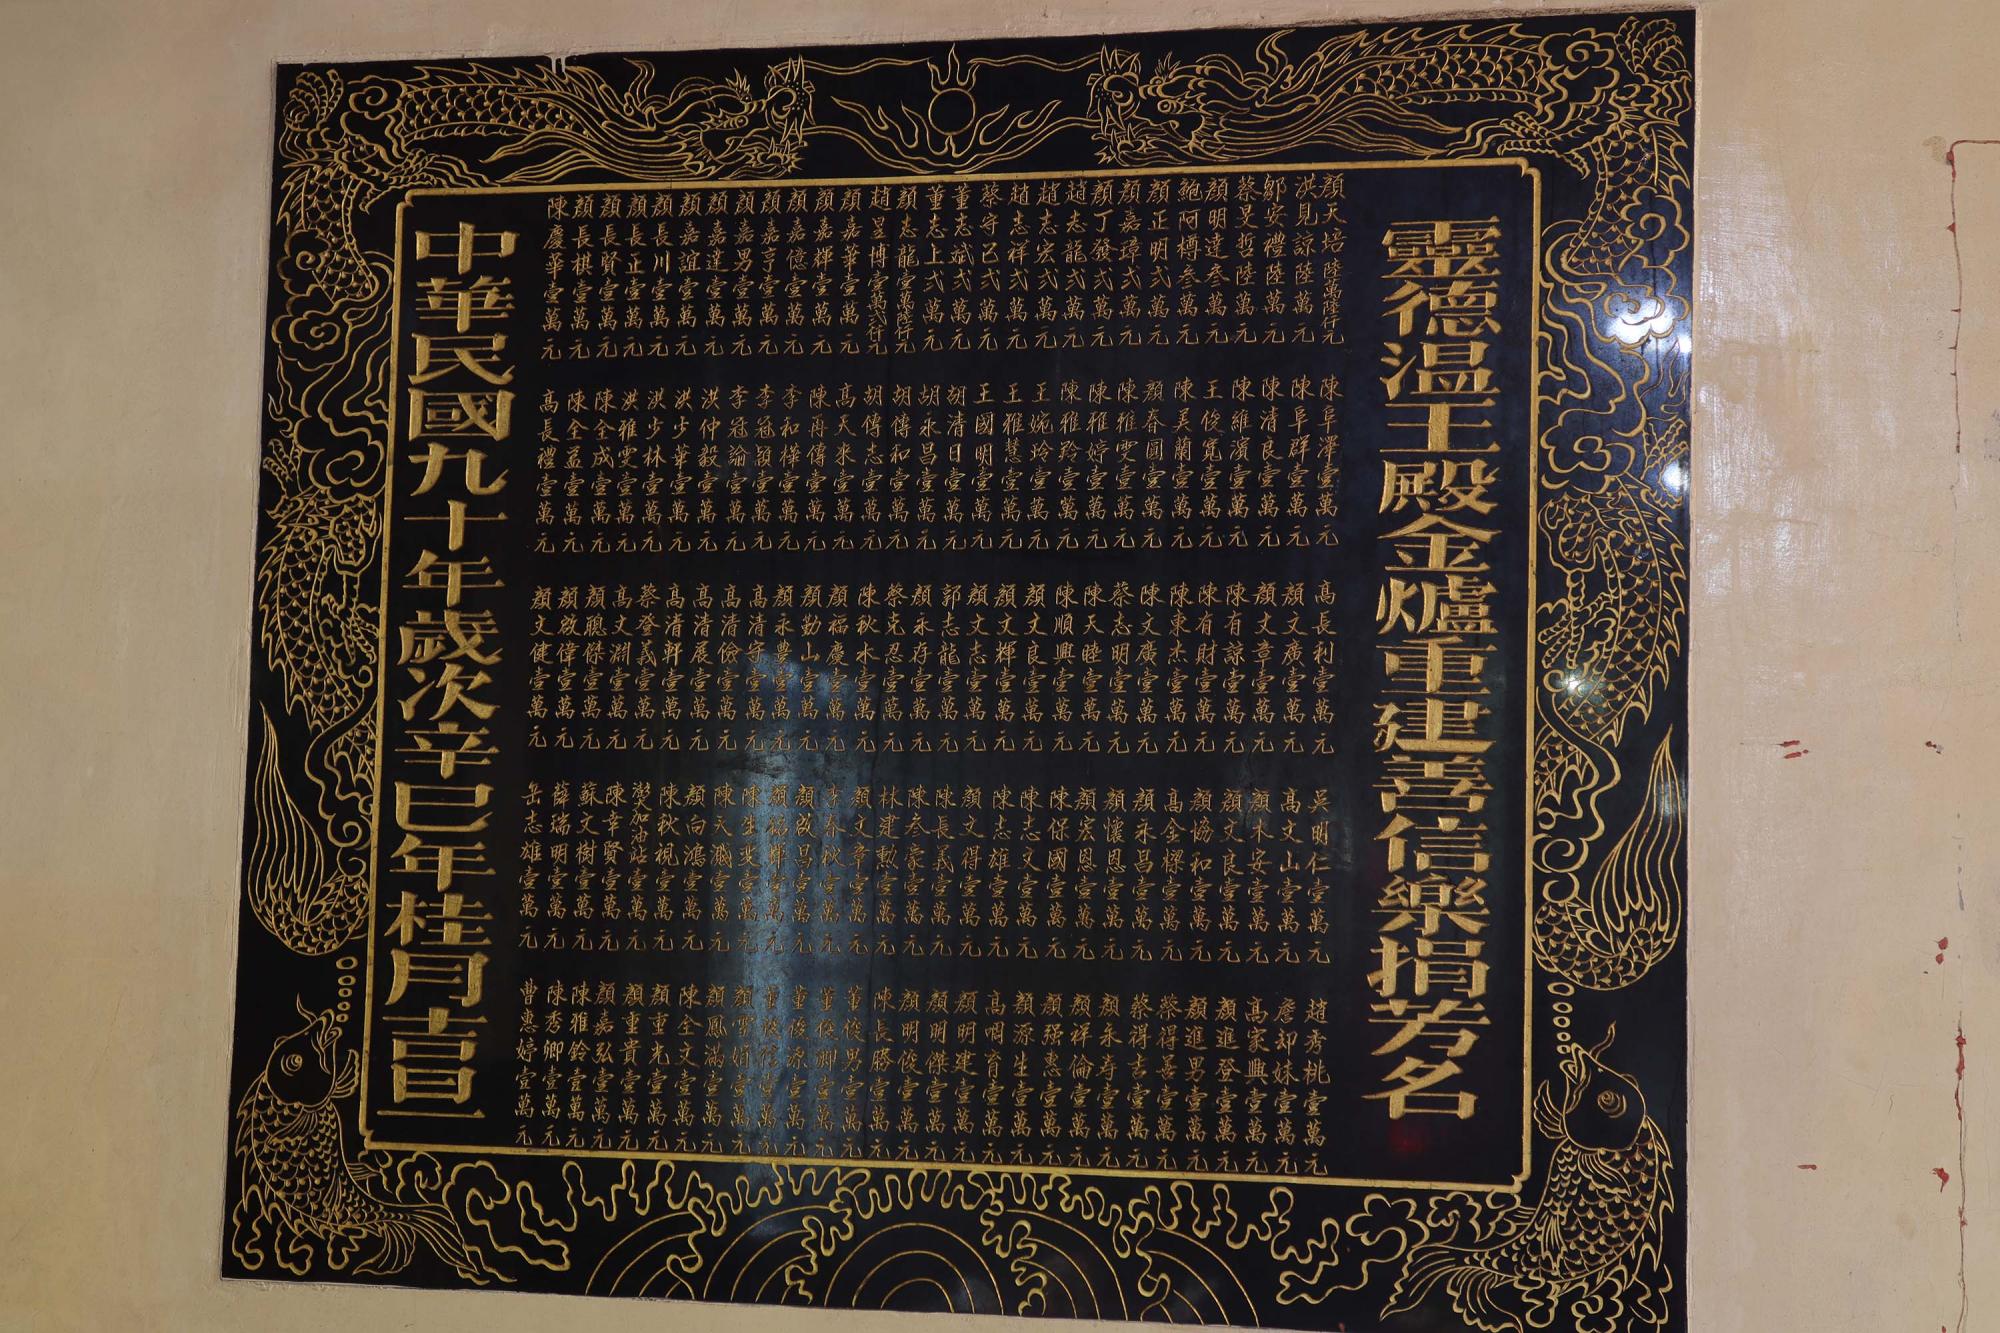 靈德温王殿金爐重建善信樂捐芳名
顏天培陸萬陸仟元
洪見諒陸萬元
鄒安禮陸萬元
蔡旻哲陸萬元
顏明達參萬元
鮑阿樽參萬元
顏正明弍萬元
顏嘉璋弍萬元
顏丁發弍萬元
趙志龍弍萬元
趙志宏弍萬元
趙志祥弍萬元
蔡守己弍萬元
董志斌弍萬元
董志上弍萬元
顏志龍壹萬陸仟元
趙昱博壹萬弍仟元
顏嘉華壹萬元
顏嘉輝壹萬元
顏嘉億壹萬元
顏嘉亨壹萬元
顏嘉男壹萬元
顏嘉達壹萬元
顏嘉誼壹萬元
顏長川壹萬元
顏長正壹萬元
顏長賢壹萬元
顏長棋壹萬元
陳慶華壹萬元
陳阜澤壹萬元
陳阜群壹萬元
陳清良壹萬元
陳維濱壹萬元
王俊寬壹萬元
陳吳蘭壹萬元
顏春圓壹萬元
陳雅雯壹萬元
陳雅婷壹萬元
陳雅羚壹萬元
王婉玲壹萬元
王雅慧壹萬元
王國明壹萬元
胡清日壹萬元
胡永昌壹萬元
胡傳和壹萬元
胡傳志壹萬元
高天來壹萬元
陳再傳壹萬元
李和樺壹萬元
李冠頴壹萬元
李冠諭壹萬元
洪仲毅壹萬元
洪少華壹萬元
洪少林壹萬元
洪雅雯壹萬元
陳全成壹萬元
陳全益壹萬元
高長禮壹萬元
高長利壹萬元
顏文廣壹萬元
顏文章壹萬元
陳有諒壹萬元
陳有財壹萬元
陳東杰壹萬元
陳文廣壹萬元
蔡志明壹萬元
陳天睦壹萬元
陳順興壹萬元
顏文良壹萬元
顏文輝壹萬元
顏文志壹萬元
郭志龍壹萬元
顏永存壹萬元
蔡克忍壹萬元
陳秋水壹萬元
顏福慶壹萬元
顏勤山壹萬元
顏永豊壹萬元
高清守壹萬元
高清儉壹萬元
高清展壹萬元
高清軒壹萬元
蔡登義壹萬元
高文淵壹萬元
顏聰傑壹萬元
顏啟偉壹萬元
顏文健壹萬元
吳明仁壹萬元
高文山壹萬元
顏木安壹萬元
顏文良壹萬元
顏協和壹萬元
高金樑壹萬元
顏永昌壹萬元
顏懷恩壹萬元
顏宏恩壹萬元
陳保國壹萬元
陳志文壹萬元
陳志雄壹萬元
顏文得壹萬元
陳長義壹萬元
陳參豪壹萬元
林建勳壹萬元
顏文章壹萬元
李春秋壹萬元
顏成昌壹萬元
顏銘輝壹萬元
陳生斐壹萬元
陳天濺壹萬元
顏向鴻壹萬元
陳秋視壹萬元
澳加油站壹萬元
陳幸賢壹萬元
蘇文樹壹萬元
薛瑞明壹萬元
岳志雄壹萬元
趙秀桃壹萬元
詹却妹壹萬元
高家興壹萬元
顏進登壹萬元
顏進男壹萬元
蔡得善壹萬元
蔡得吉壹萬元
顏永存壹萬元
顏祥倫壹萬元
顏强惠壹萬元
顏源生壹萬元
高啁育壹萬元
顏明建壹萬元
顏明傑壹萬元
顏明俊壹萬元
陳長勝壹萬元
董俊男壹萬元
董俊卿壹萬元
董俊添壹萬元
顏鳳滿壹萬元
陳全文壹萬元
顏重光壹萬元
顏重貴壹萬元
顏嘉弘壹萬元
陳雅鈴壹萬元
陳秀卿壹萬元
曹惠婷壹萬元
中華民國九十年歲次辛巳年桂月吉旦